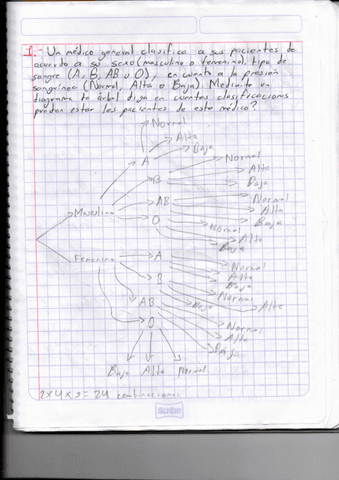 1.- Un médico general clasifica a sus pacientes de
acuerdo a su sexo (masculino o femenino), tipo de
sangre (A, B, AB u O), en cuanto a la presión
sanguínea (Normal, Alta o Baja). Mediante un
diagrama de árbol diga en cuantas clasificaciones
pueden estar los pacientes de este médico?
Normal
Alta
Baja
A
Normal
B
Alta
Baja
AB
Normal
Masculino
Alta
O
Baja
Normal
Alta
Baja
Femenino
A
Normal
B
Alta
Baja
Normal
AB
Baja
Alta
O
Normal
Alta
Baja
Baja Alta Normal
2x4x3=24 combinaciones
Scribe